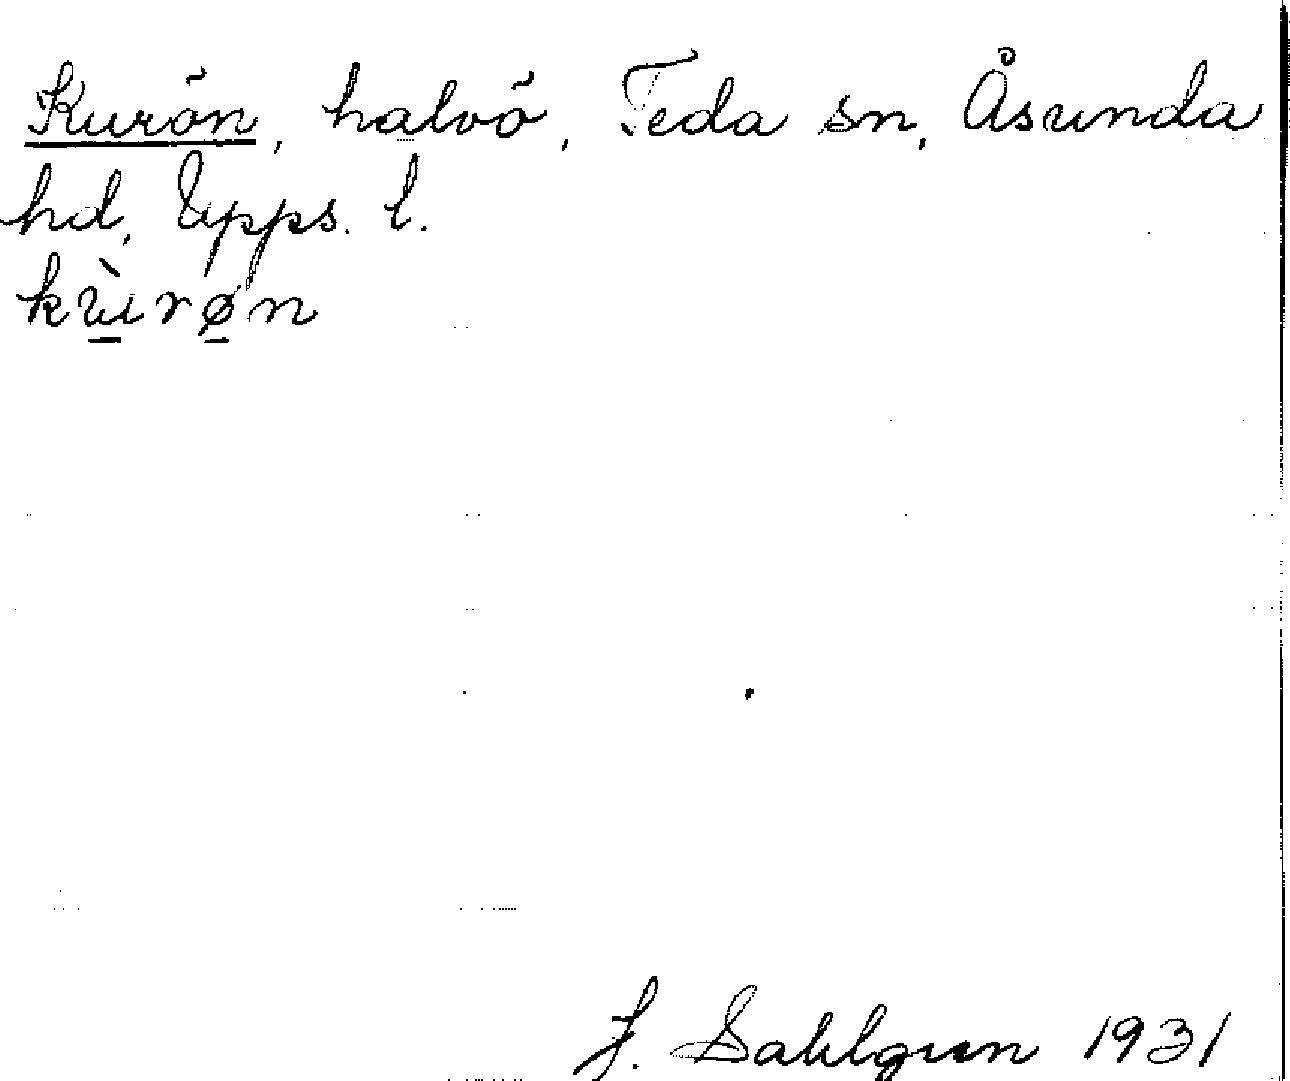 Kurön, halvö, Teda sn, Åsunda
hd, Upps. l.
kùrøn
J. Sahlgren 1931